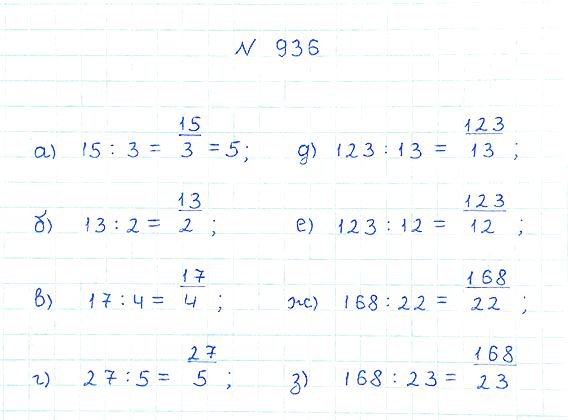 N 936
а) 15 : 3 = 15/3 = 5; д) 123 : 13 = 123/13 ;
б) 13 : 2 = 13/2 ; е) 123 : 12 = 123/12 ;
в) 17 : 4 = 17/4 ; ж) 168 : 22 = 168/22 ;
г) 27 : 5 = 27/5 ; з) 168 : 23 = 168/23